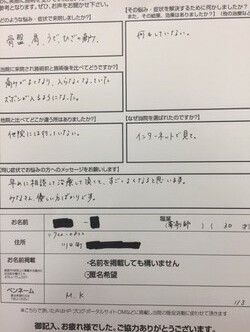 どのような悩み・症状で来院しましたか?
骨盤、肩、うで、ひざの痛み。
その悩み・症状を解決するために何かしましたか?
また、その結果、効果はありましたか?
何もしていない。
当院に来院され施術前と施術後を比べてどうですか?
痛みがよくなり、入らなくなっていた
ズボンが入るようになった。
他院と比べてどこか違う所はありましたか?
他院には行っていない。
なぜ当院を選ばれたのですか?
インターネットで見て。
同じ症状でお悩みの方へのメッセージをお願いします!
早めに相談して治療して頂くと、すごくよくなると思います。
みなさん、優しい方ばかりです。
お名前
職業
(30才)
住所
川口市
お名前掲載
・名前を掲載しても構いません
・匿名希望
ペンネーム
M.K
御記入、お疲れ様でした。ご協力ありがとうございます。